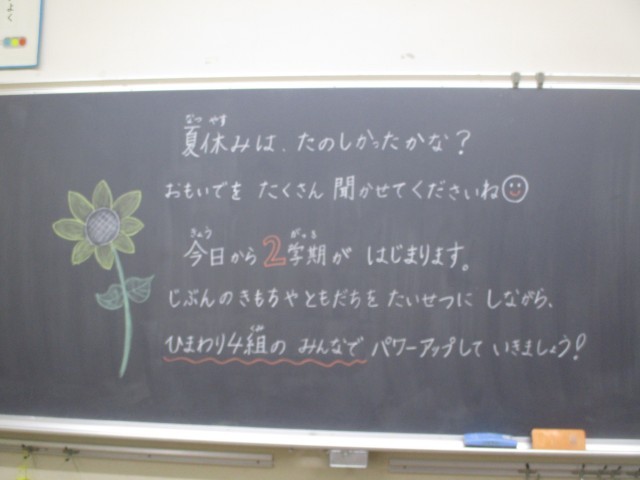 よく
なつ やす
夏休みは、たのしかったかな？
おもいでを たくさん 聞かせてくださいね
きょう がっき
今日から2学期が はじまります。
じぶんのきもちやともだちを たいせつに しながら、
ひまわり4組の みんなで パワーアップして いきましょう!